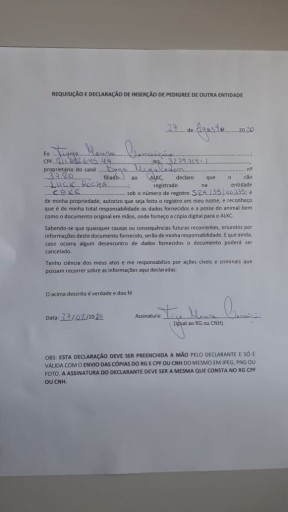 REQUISIÇÃO E DECLARAÇÃO DE INSERÇÃO DE PEDIGREE DE OUTRA ENTIDADE
27 de Agosto 2020
Eu Tiago Moreira
CPF RG
proprietário do canil nº
3780 filiado ao AUKC declaro que o cão
LUCK ROCHA registrado na entidade
CBKC sob o número de registro
de minha propriedade, autorizo que seja feito o registro em meu nome, e reconheço
que é de minha total responsabilidade os dados fornecidos e a posse do animal bem
como o documento original em mãos, onde forneço a cópia digital para o AUKC.
Sabendo-se que quaisquer causas ou consequências futuras recorrentes, oriundos por
informações deste documento fornecido, serão de minha responsabilidade. E que ainda,
caso ocorra algum desencontro de dados fornecidos o documento poderá ser
cancelado.
Tenho ciência dos meus atos e me responsabilizo por ações cíveis e criminais que
possam recorrer sobre as informações aqui declaradas.
O acima descrito é verdade e dou fé
Data: 27/08/2020 Assinatura:
(igual ao RG ou CNH)
OBS: ESTA DECLARAÇÃO DEVE SER PREENCHIDA A MÃO PELO DECLARANTE E SÓ É
VÁLIDA COM O ENVIO DAS CÓPIAS DO RG E CPF OU CNH DO MESMO EM JPEG, PNG OU
FOTO. A ASSINATURA DO DECLARANTE DEVE SER A MESMA QUE CONSTA NO RG CPF
OU CNH.